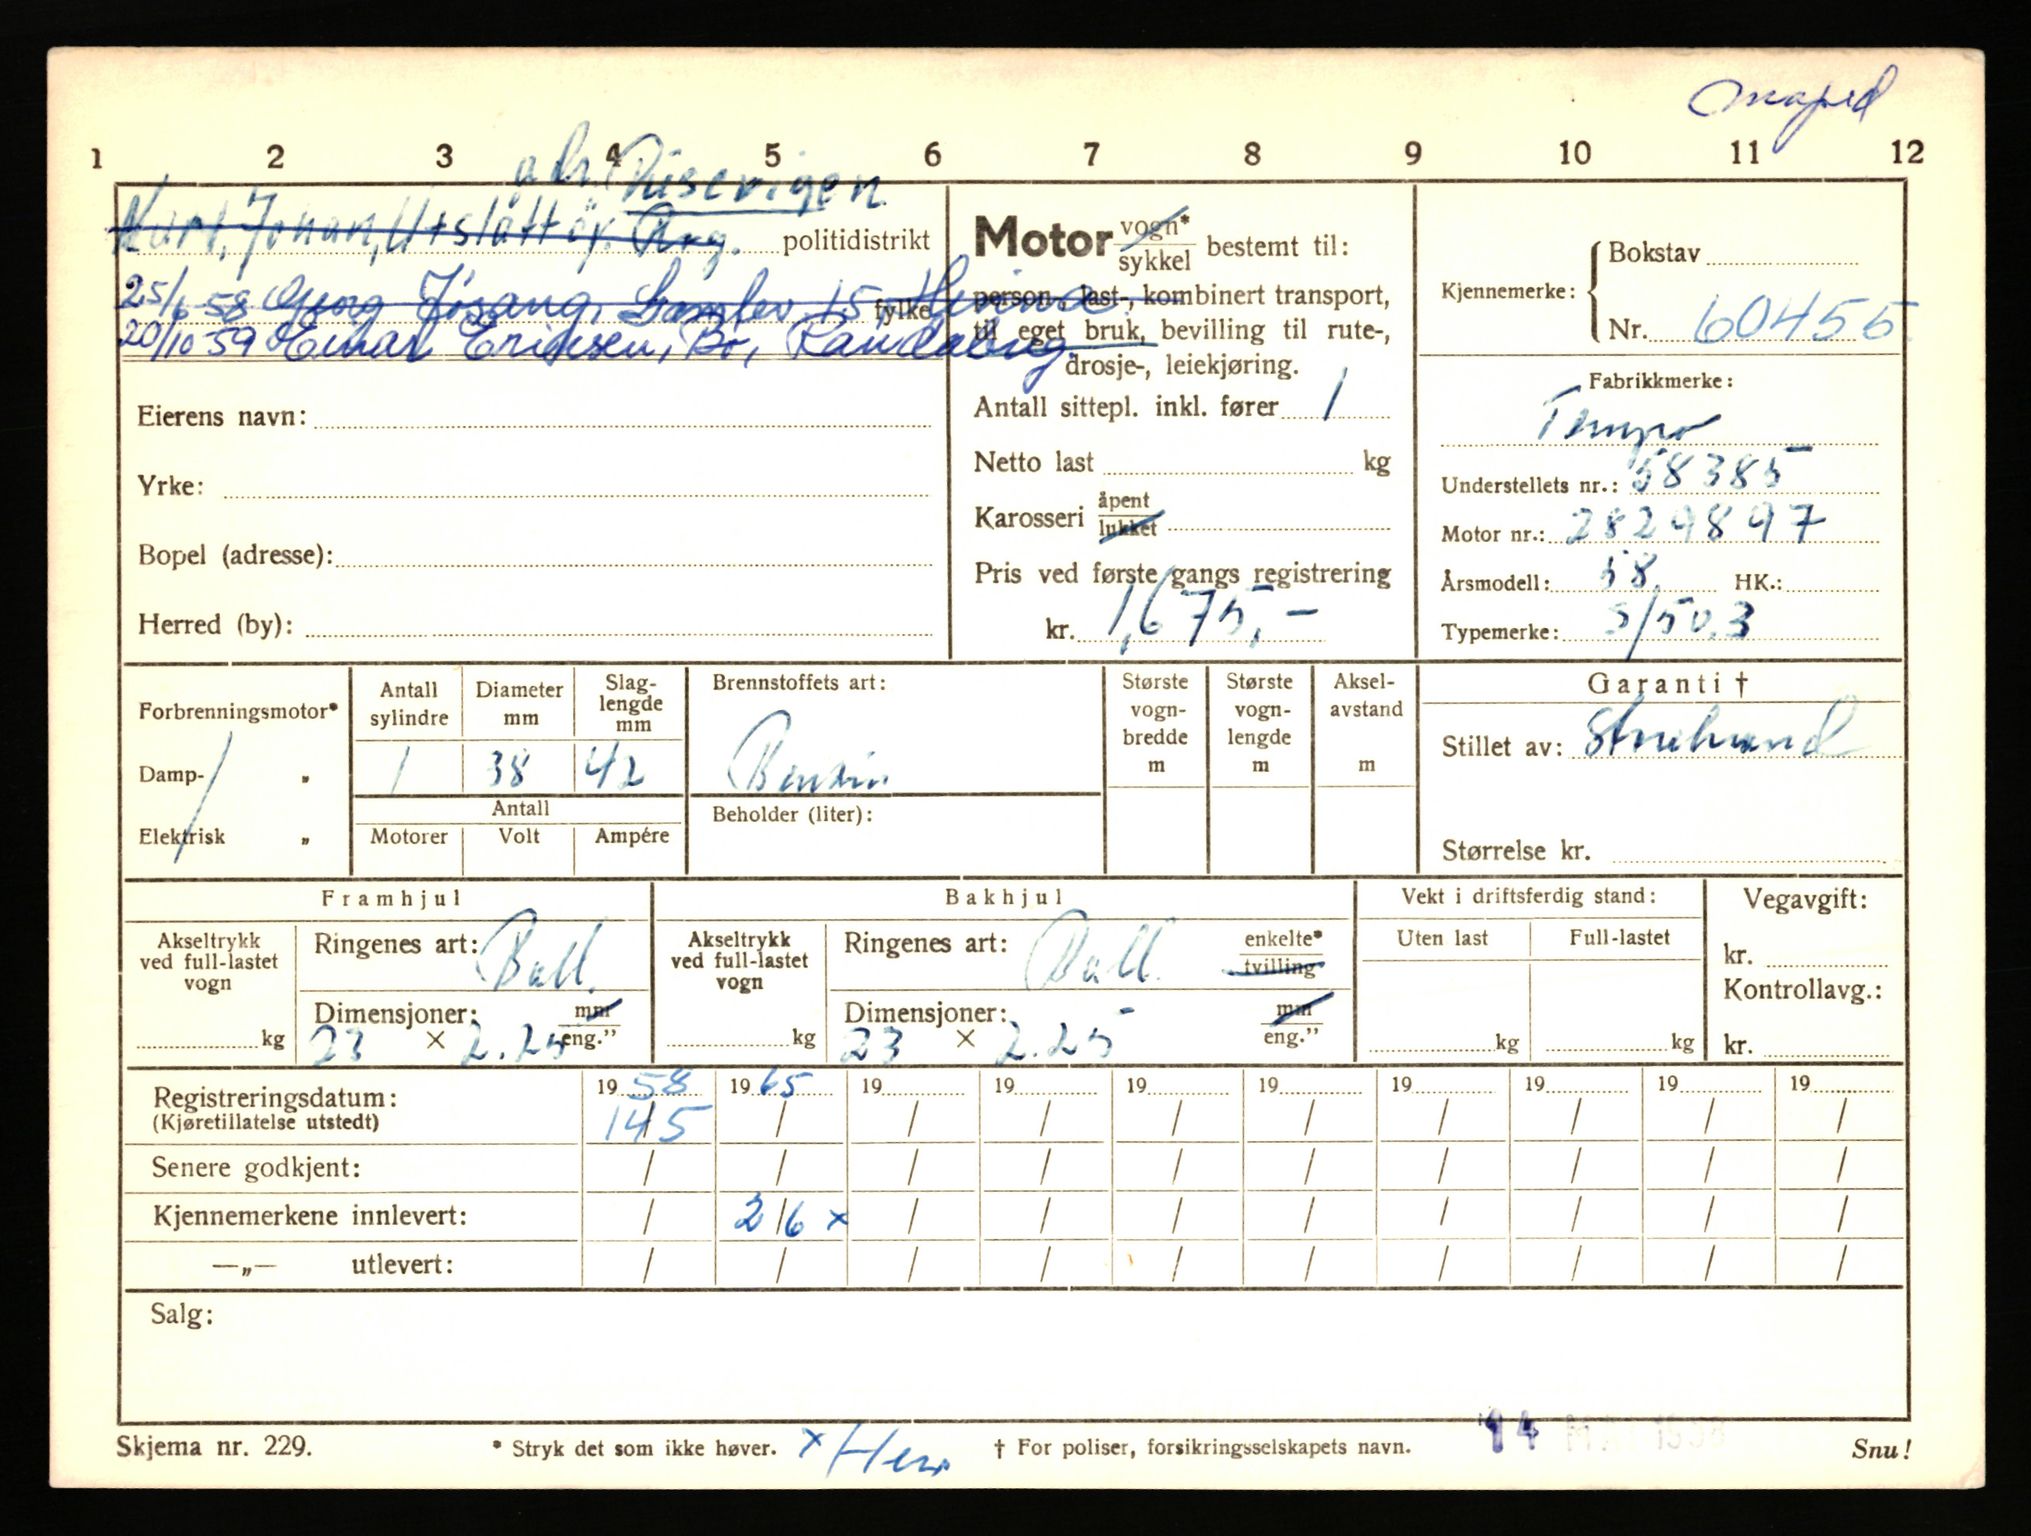 Moped
1 2 3 4 5 6 7 8 9 10 11 12
adr. Risevigen
Kurt, Johan, Utslåttøy. Arg. politidistrikt
25/6 58 Georg Jøsang, Gamlev 15 fylke
20/10 59 Einar Eriksen, Bø, Randaberg
Eierens navn:
Yrke:
Bopel (adresse):
Herred (by):
Motor vogn* sykkel bestemt til:
person-, last-, kombinert transport,
til eget bruk, bevilling til rute-,
drosje-, leiekjøring.
Antall sittepl. inkl. fører 1
Netto last kg
Karosseri åpent lukket
Pris ved første gangs registrering
kr. 1,675,-
Kjennemerke: Bokstav
Nr. 60455
Fabrikkmerke:
Tempo
Understellets nr.: 58385
Motor nr.: 2829897
Årsmodell: 58 HK.:
Typemerke: S/50.3
Forbrenningsmotor*
Damp- „
Elektrisk „
Antall sylindre 1
Diameter mm 38
Slaglengde mm 42
Antall
Motorer Volt Ampére
Brennstoffets art:
Bensin
Beholder (liter):
Største vogn-bredde m
Største vogn-lengde m
Aksel-avstand m
Garanti †
Stillet av: Storebrand
Størrelse kr.
Framhjul
Akseltrykk ved full-lastet vogn kg
Ringenes art: Ball.
Dimensjoner: mm
23 × 2.25 eng."
Bakhjul
Akseltrykk ved full-lastet vogn kg
Ringenes art: Ball. enkelte* tvilling
Dimensjoner: mm
23 × 2.25 eng."
Vekt i driftsferdig stand:
Uten last Full-lastet
kg kg
Vegavgift:
kr.
Kontrollavg.:
kr.
Registreringsdatum: 19 58 19 65 19 19 19 19 19 19 19 19
(Kjøretillatelse utstedt) 14/5 / / / / / / / / /
Senere godkjent: / / / / / / / / / /
Kjennemerkene innlevert: / 2/6 x / / / / / / / /
—„— utlevert: / / / / / / / / / /
Salg:
14 MAI 1958
Skjema nr. 229. * Stryk det som ikke høver. x Hen. † For poliser, forsikringsselskapets navn. Snu!